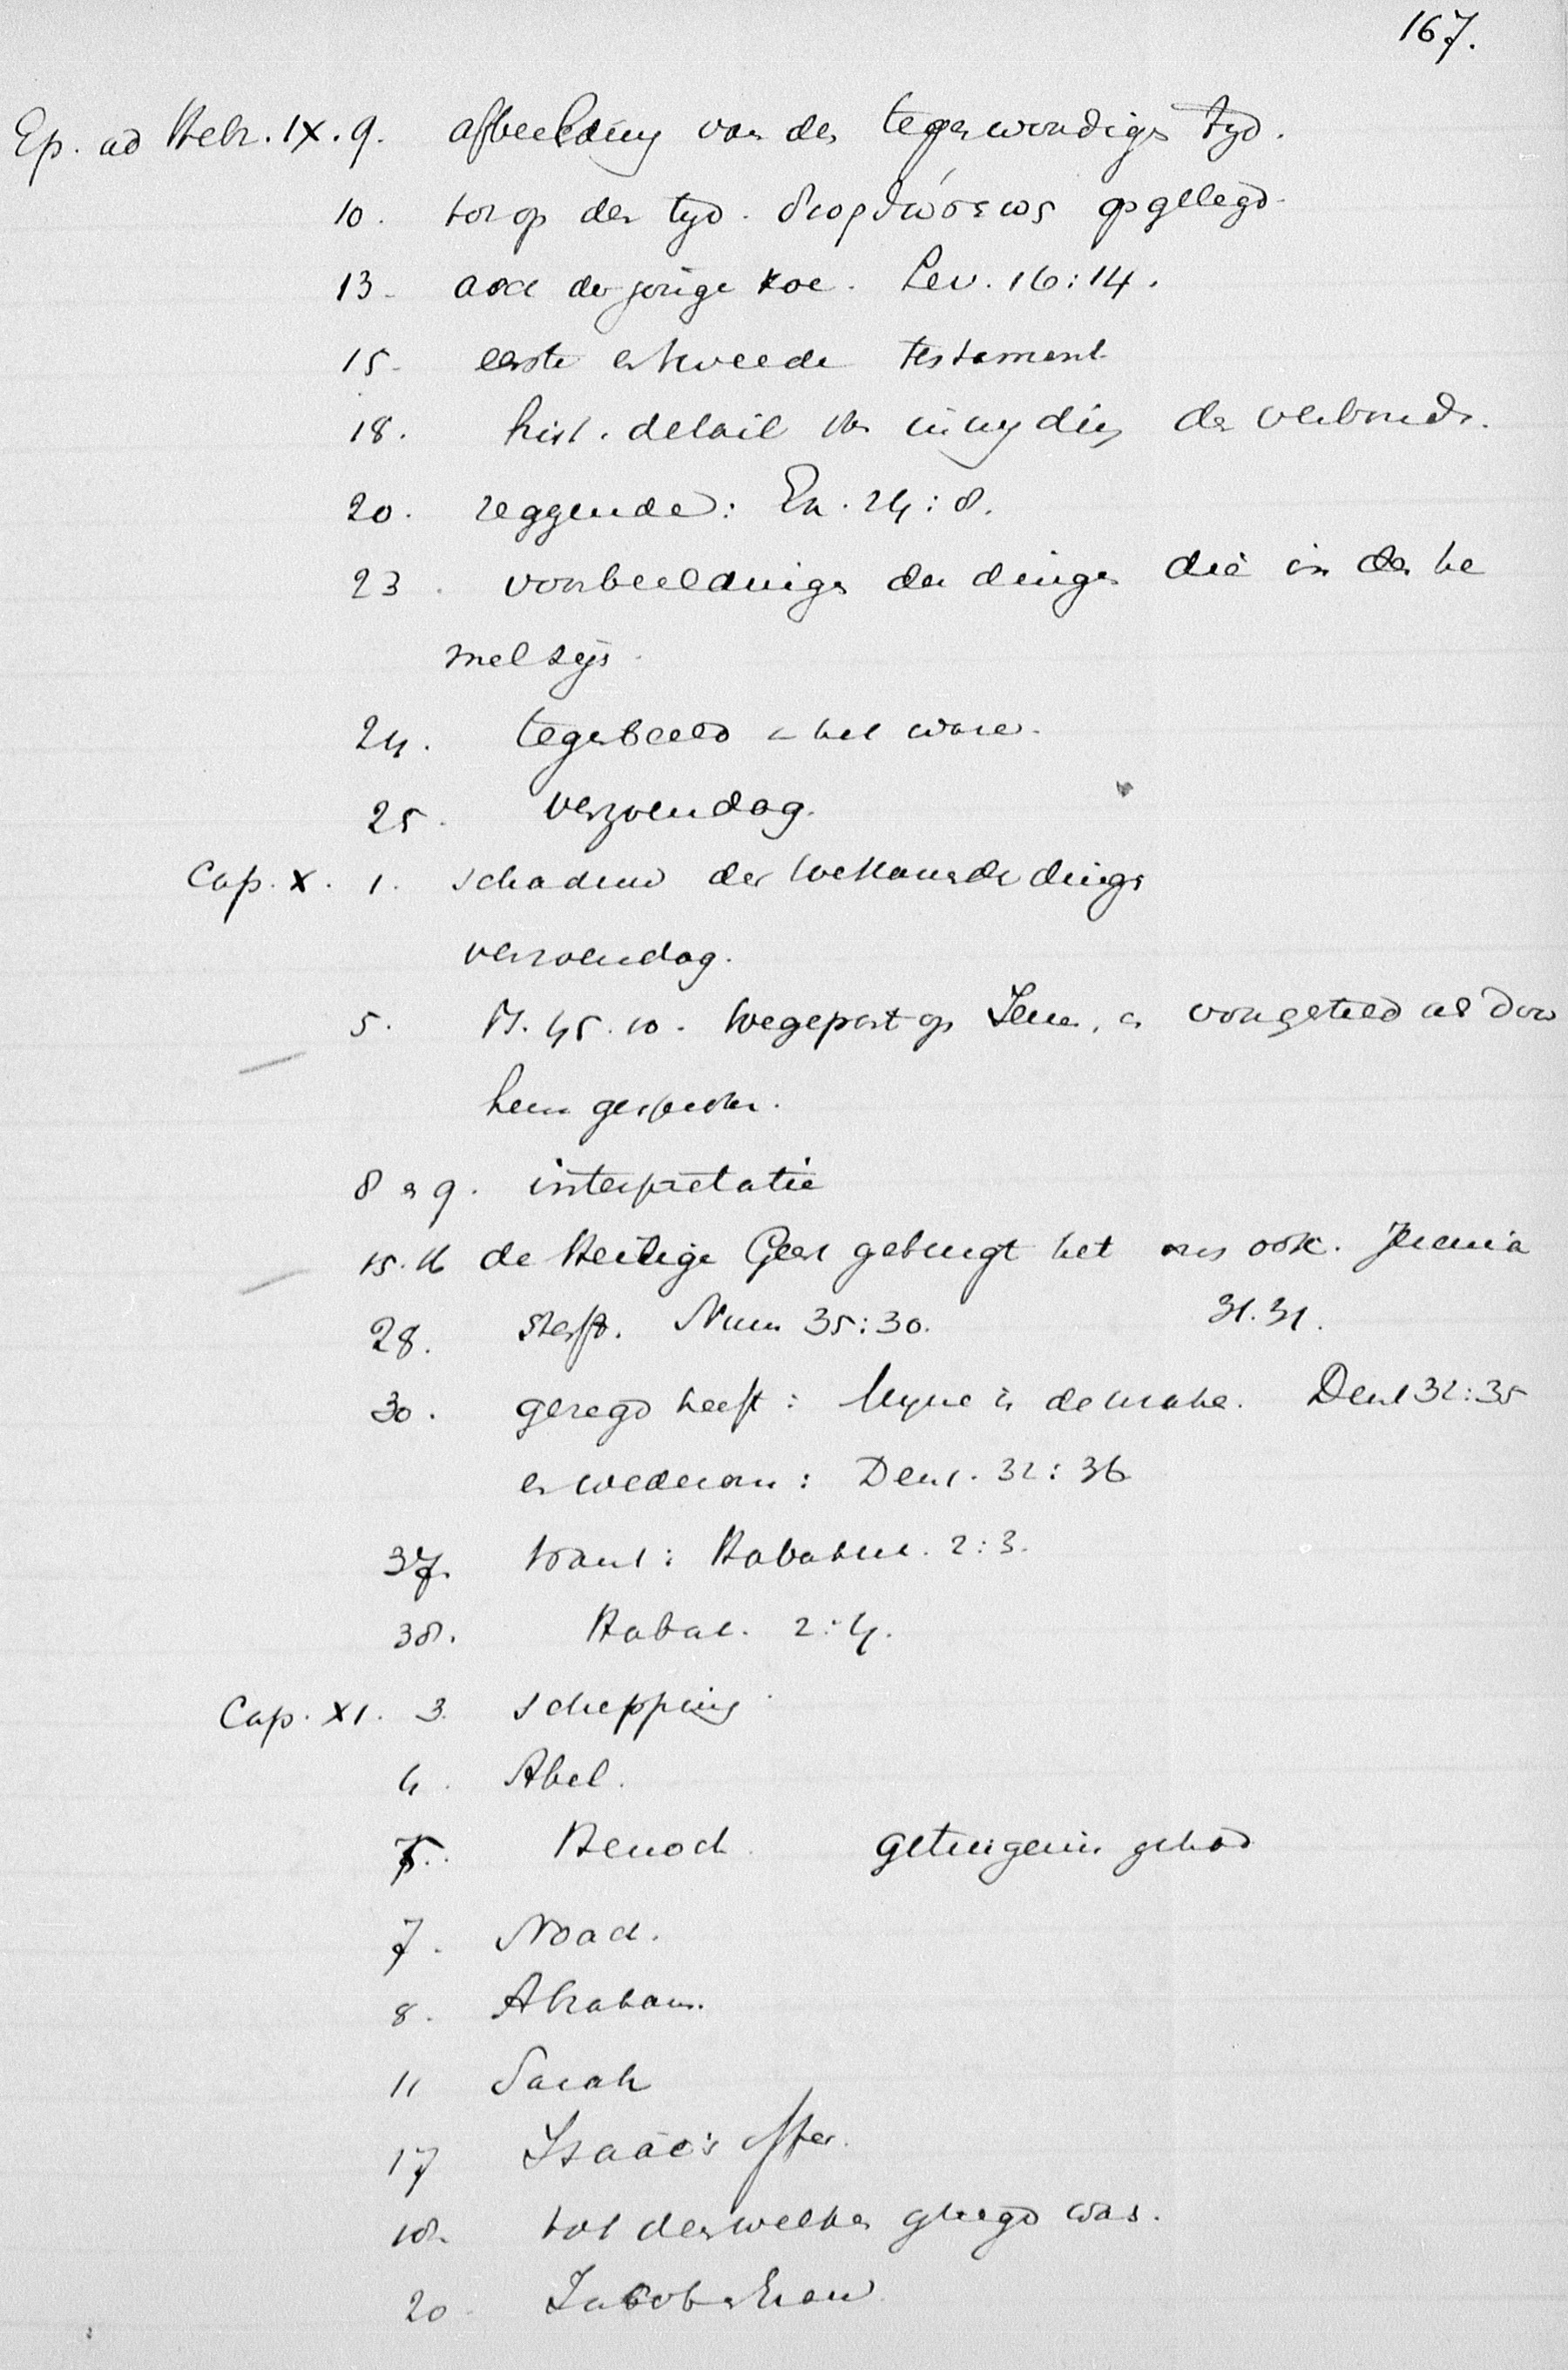 167.
Ep. ad Hebr. IX. 9. afbeelding van den tegenwoordigen tyd.
10. tot op den tyd. διορθώσεως opgelegd.
13. asch der jonge koe. Lev. 16:14.
15. eerste en tweede testament
18. hist. detail van inwyding des verbonds.
20. zeggende: Ex. 24:8.
23. voorbeeldingen der dingen die in den he
mel zijn.
24. tegenbeeld = het ware.
25. verzoendag.
Cap. X. 1. schaduw der toekomende dingen
verzoendag.
5. Ps. 45.10. toegepast op Jezus, en voorgesteld als door
hem gesproken.
8 en 9. interpretatie
15.16 de Heilige Geest getuigt het ons ook. Jeremia
31.31.
28. sterft. Num 35:30.
30. gezegd heeft: Myne is de wrake. Deut 32:35
en wederom: Deut. 32:36
37. want: Habakuk. 2:3.
38. Habac. 2:4.
Cap. XI. 3. schepping
4. Abel.
5. Henoch. getuigenis gehad
7. Noach.
8. Abraham.
11 Sarah
17 Isaäc's offer.
18. tot denwelken gezegd was.
20. Jacob en Esau